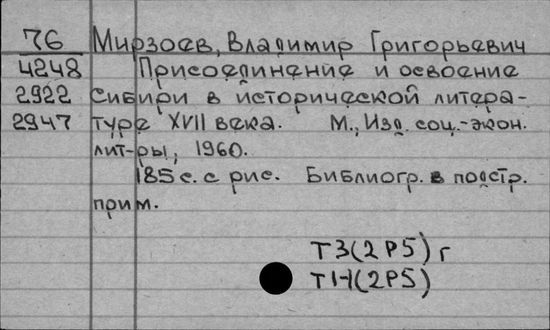 76 Мирзоев, Владимир Григорьевич
4248 Присоединение и освоение
2922 Сибири в исторической литера-
2947 туре XVII века. М., Изд. соц.-экон.
лит-ры, 1960.
185 с. с рис. Библиогр. в подстр.
прим.
Т3(2Р5) г
Т1-1(2Р5)